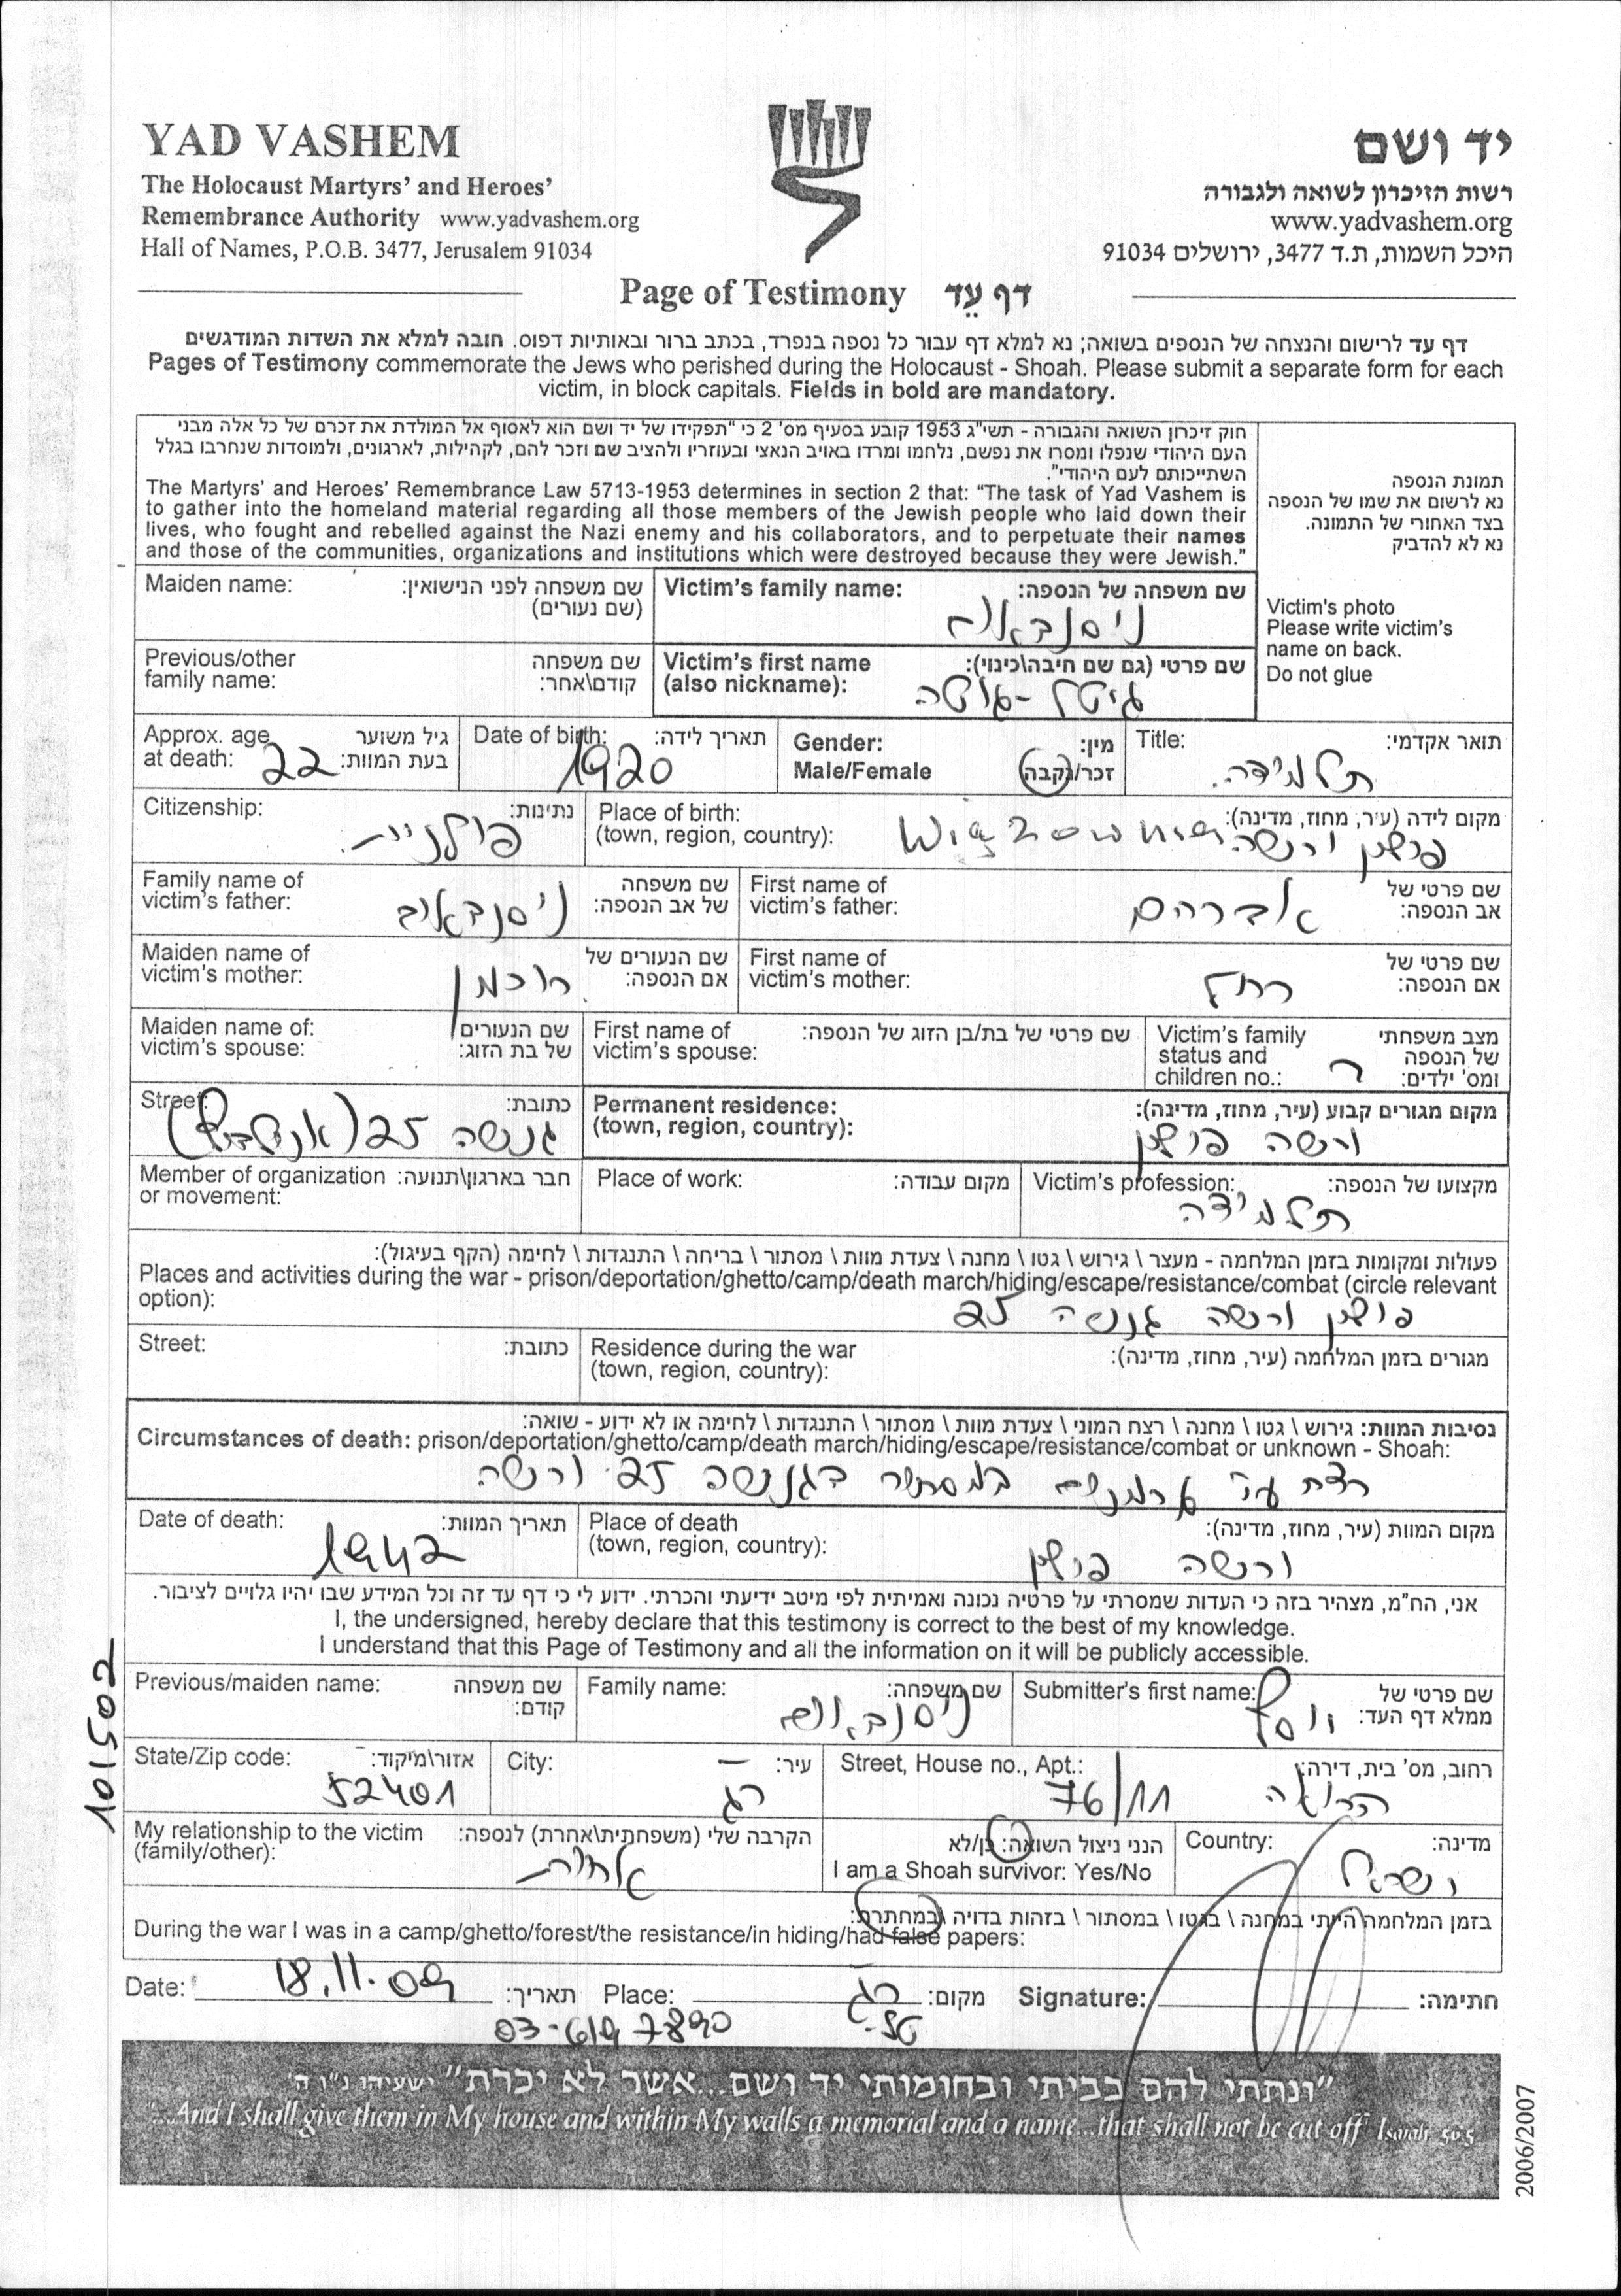 YAD VASHEM
The Holocaust Martyrs' and Heroes'
Remembrance Authority www.yadvashem.org
Hall of Names, P.O.B. 3477, Jerusalem 91034
יד ושם
רשות הזיכרון לשואה ולגבורה
www.yadvashem.org
היכל השמות, ת.ד 3477, ירושלים 91034
Page of Testimony דף עֵד
דף עד לרישום והנצחה של הנספים בשואה; נא למלא דף עבור כל נספה בנפרד, בכתב ברור ובאותיות דפוס. חובה למלא את השדות המודגשים
Pages of Testimony commemorate the Jews who perished during the Holocaust - Shoah. Please submit a separate form for each
victim, in block capitals. Fields in bold are mandatory.
חוק זיכרון השואה והגבורה - תשי"ג 1953 קובע בסעיף מס' 2 כי "תפקידו של יד ושם הוא לאסוף אל המולדת את זכרם של כל אלה מבני
העם היהודי שנפלו ומסרו את נפשם, נלחמו ומרדו באויב הנאצי ובעוזריו ולהציב שם וזכר להם, לקהילות, לארגונים, ולמוסדות שנחרבו בגלל
השתייכותם לעם היהודי".
The Martyrs' and Heroes' Remembrance Law 5713-1953 determines in section 2 that: "The task of Yad Vashem is
to gather into the homeland material regarding all those members of the Jewish people who laid down their
lives, who fought and rebelled against the Nazi enemy and his collaborators, and to perpetuate their names
and those of the communities, organizations and institutions which were destroyed because they were Jewish."
תמונת הנספה
נא לרשום את שמו של הנספה
בצד האחורי של התמונה.
נא לא להדביק
Victim's photo
Please write victim's
name on back.
Do not glue
Maiden name: שם משפחה לפני הנישואין:
(שם נעורים)
Victim's family name: שם משפחה של הנספה:
ניסנבאום
Previous/other שם משפחה
family name: קודם\אחר:
Victim's first name שם פרטי (גם שם חיבה\כינוי):
(also nickname): גיטל -גוטה
Approx. age גיל משוער
at death: 22 בעת המוות:
Date of birth: תאריך לידה:
1920
Gender: מין:
Male/Female זכר/נקבה
Title: תואר אקדמי:
תלמידה.
Citizenship: נתינות:
פולניה
Place of birth: מקום לידה (עיר, מחוז, מדינה):
(town, region, country): Wiązowna
פולין ורשה
Family name of שם משפחה
victim's father: של אב הנספה:
ניסנבאום
First name of שם פרטי של
victim's father: אב הנספה:
אברהם
Maiden name of שם הנעורים של
victim's mother: אם הנספה:
First name of שם פרטי של
victim's mother: אם הנספה:
רחל
Maiden name of: שם הנעורים
victim's spouse: של בת הזוג:
First name of שם פרטי של בת/בן הזוג של הנספה:
victim's spouse:
Victim's family מצב משפחתי
status and של הנספה
children no.: ומס' ילדים:
ר
Street: כתובת:
גנשה 25
Permanent residence: מקום מגורים קבוע (עיר, מחוז, מדינה):
(town, region, country):
ורשה פולין
Member of organization חבר בארגון\תנועה:
or movement:
Place of work: מקום עבודה:
Victim's profession: מקצועו של הנספה:
תלמידה
פעולות ומקומות בזמן המלחמה - מעצר \ גירוש \ גטו \ מחנה \ צעדת מוות \ מסתור \ בריחה \ התנגדות \ לחימה (הקף בעיגול):
Places and activities during the war - prison/deportation/ghetto/camp/death march/hiding/escape/resistance/combat (circle relevant
option):
פולין ורשה גנשה 25
Street: כתובת:
Residence during the war מגורים בזמן המלחמה (עיר, מחוז, מדינה):
(town, region, country):
נסיבות המוות: גירוש \ גטו \ מחנה \ רצח המוני \ צעדת מוות \ מסתור \ התנגדות \ לחימה או לא ידוע - שואה:
Circumstances of death: prison/deportation/ghetto/camp/death march/hiding/escape/resistance/combat or unknown - Shoah:
רצח ע"י גרמנים במסתור בגנשה 25 ורשה
Date of death: תאריך המוות:
1942
Place of death מקום המוות (עיר, מחוז, מדינה):
(town, region, country):
ורשה פולין
אני, הח"מ, מצהיר בזה כי העדות שמסרתי על פרטיה נכונה ואמיתית לפי מיטב ידיעתי והכרתי. ידוע לי כי דף עד זה וכל המידע שבו יהיו גלויים לציבור.
I, the undersigned, hereby declare that this testimony is correct to the best of my knowledge.
I understand that this Page of Testimony and all the information on it will be publicly accessible.
Previous/maiden name: שם משפחה
קודם:
Family name: שם משפחה:
ניסנבאום
Submitter's first name: שם פרטי של
ממלא דף העד:
יוסף
State/Zip code: אזור\מיקוד:
52401
City: עיר:
רג
Street, House no., Apt.: רחוב, מס' בית, דירה:
הרואה 76/11
My relationship to the victim הקרבה שלי (משפחתית\אחרת) לנספה:
(family/other):
אחות
הנני ניצול השואה: כן/לא
I am a Shoah survivor: Yes/No
Country: מדינה:
ישראל
בזמן המלחמה הייתי במחנה \ בגטו \ במסתור \ בזהות בדויה \ במחתרת:
During the war I was in a camp/ghetto/forest/the resistance/in hiding/had false papers:
Date: 18.11.09 תאריך: Place: רג מקום: Signature: חתימה:
03-6197890 טל
"ונתתי להם בביתי ובחומותי יד ושם...אשר לא יכרת" ישעיהו נ"ו ה'
"...And I shall give them in My house and within My walls a memorial and a name...that shall not be cut off" Isaiah 56:5
101502
2006/2007